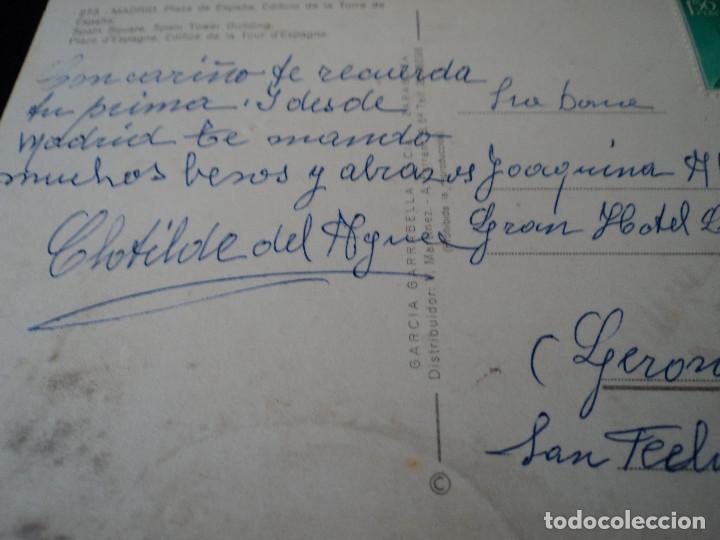 273 - MADRID. Plaza de España. Edificio de la Torre de
España.
Spain Square. Spain Tower Building.
Place d'Espagne. Edifice de la Tour d'Espagne.
Con cariño te recuerda
tu prima. Y desde
Madrid te mando
muchos besos y abrazos
Clotilde del
GARCIA GARRABELLA
Distribuidor:
(Prohibida la reproducción)
©
Joaquina
Gran Hotel
(Geron
San Feeli
todocoleccion
todocoleccion.net